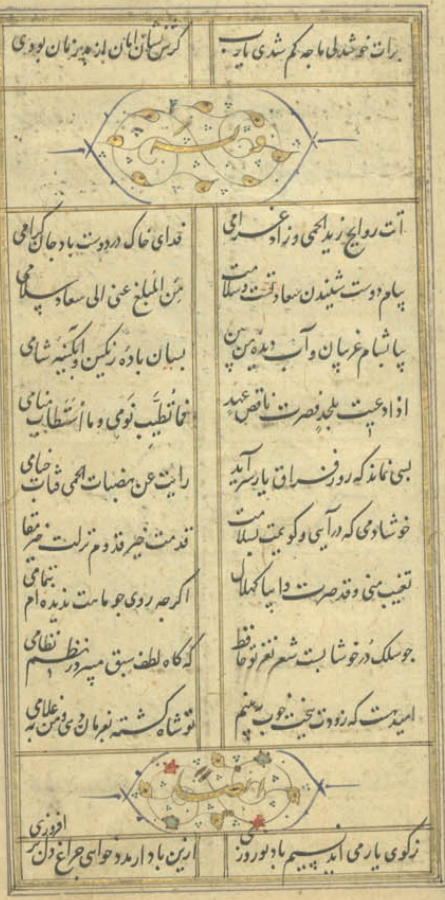 برات خوشدلی ما جه کم شدی یارب
کرش نشان امان از بد زمان بودی
اتت روایح زید الحمی و زاد غرامی
فدای خاک در دوست باد جان کرامی
پیام دوست شنیدن سعادتست و سلامت
من المبلغ عنی الی سعاد سلامی
بیا بشام غریبان و آب دیده من بین
بسان باده رنکین و آبکینه شامی
اذا دعیت بلجد فصرت ناقض عهد
فما تطیب نومی و ما استطاب منامی
بسی نماند که روز فراق یار سرآید
رایت عن هضبات الحمی قباب خیامی
خوشا دمی که درآیی و کویمت بسلامت
قدمت خیر قدوم نزلت خیر مقام
تغیب منی و قد صرت دایبا کهلال
اکرجه روی جو ماهت ندیده ام بتمامی
جو سلک در خوشابست شعر نغز تو حافظ
که کاه لطف سبق میبرد ز نظم نظامی
امید هست که زودت ببخت خوب ببینم
تو شاه کشته بفرمان دهی و من بغلامی
ایضا
ز کوی یار می آید نسیم باد نوروزی
ازین باد ار مدد خواهی جراغ دل برافروزی